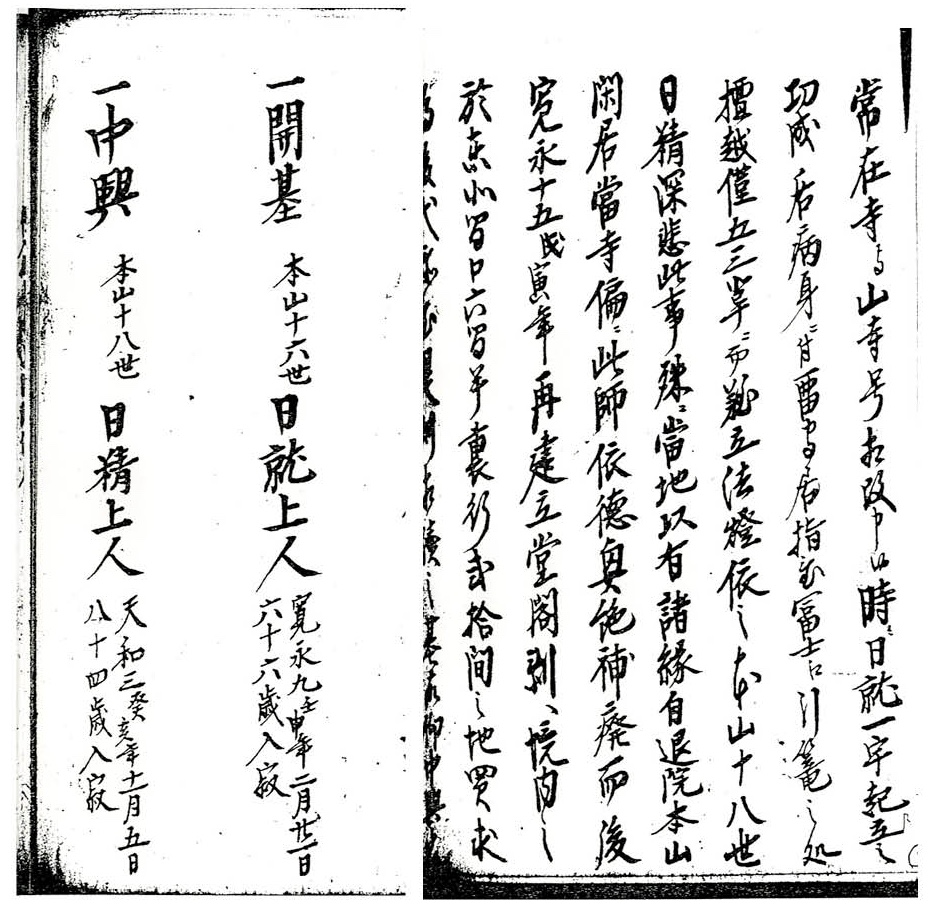 常在寺与山寺号相改申候時ニ日就一宇起立之
功成后病身ニ付當寺居指置冨士江引篭之処
檀越僅五三輩ニ而難立法燈依之本山十八世
日精深悲此事殊ニ當地以有諸縁自退院本山
閑居當寺偏ニ此師依德奥絶補廢而後
寛永十五戊寅年再建立堂閣剰、境内之
於東北間口六間半裏行弐拾間之地買求
一開基 本山十六世 日就上人 寛永九壬申年二月廿一日 六十六歳入寂
一中興 本山十八世 日精上人 天和三癸亥年十一月五日 八十四歳入寂